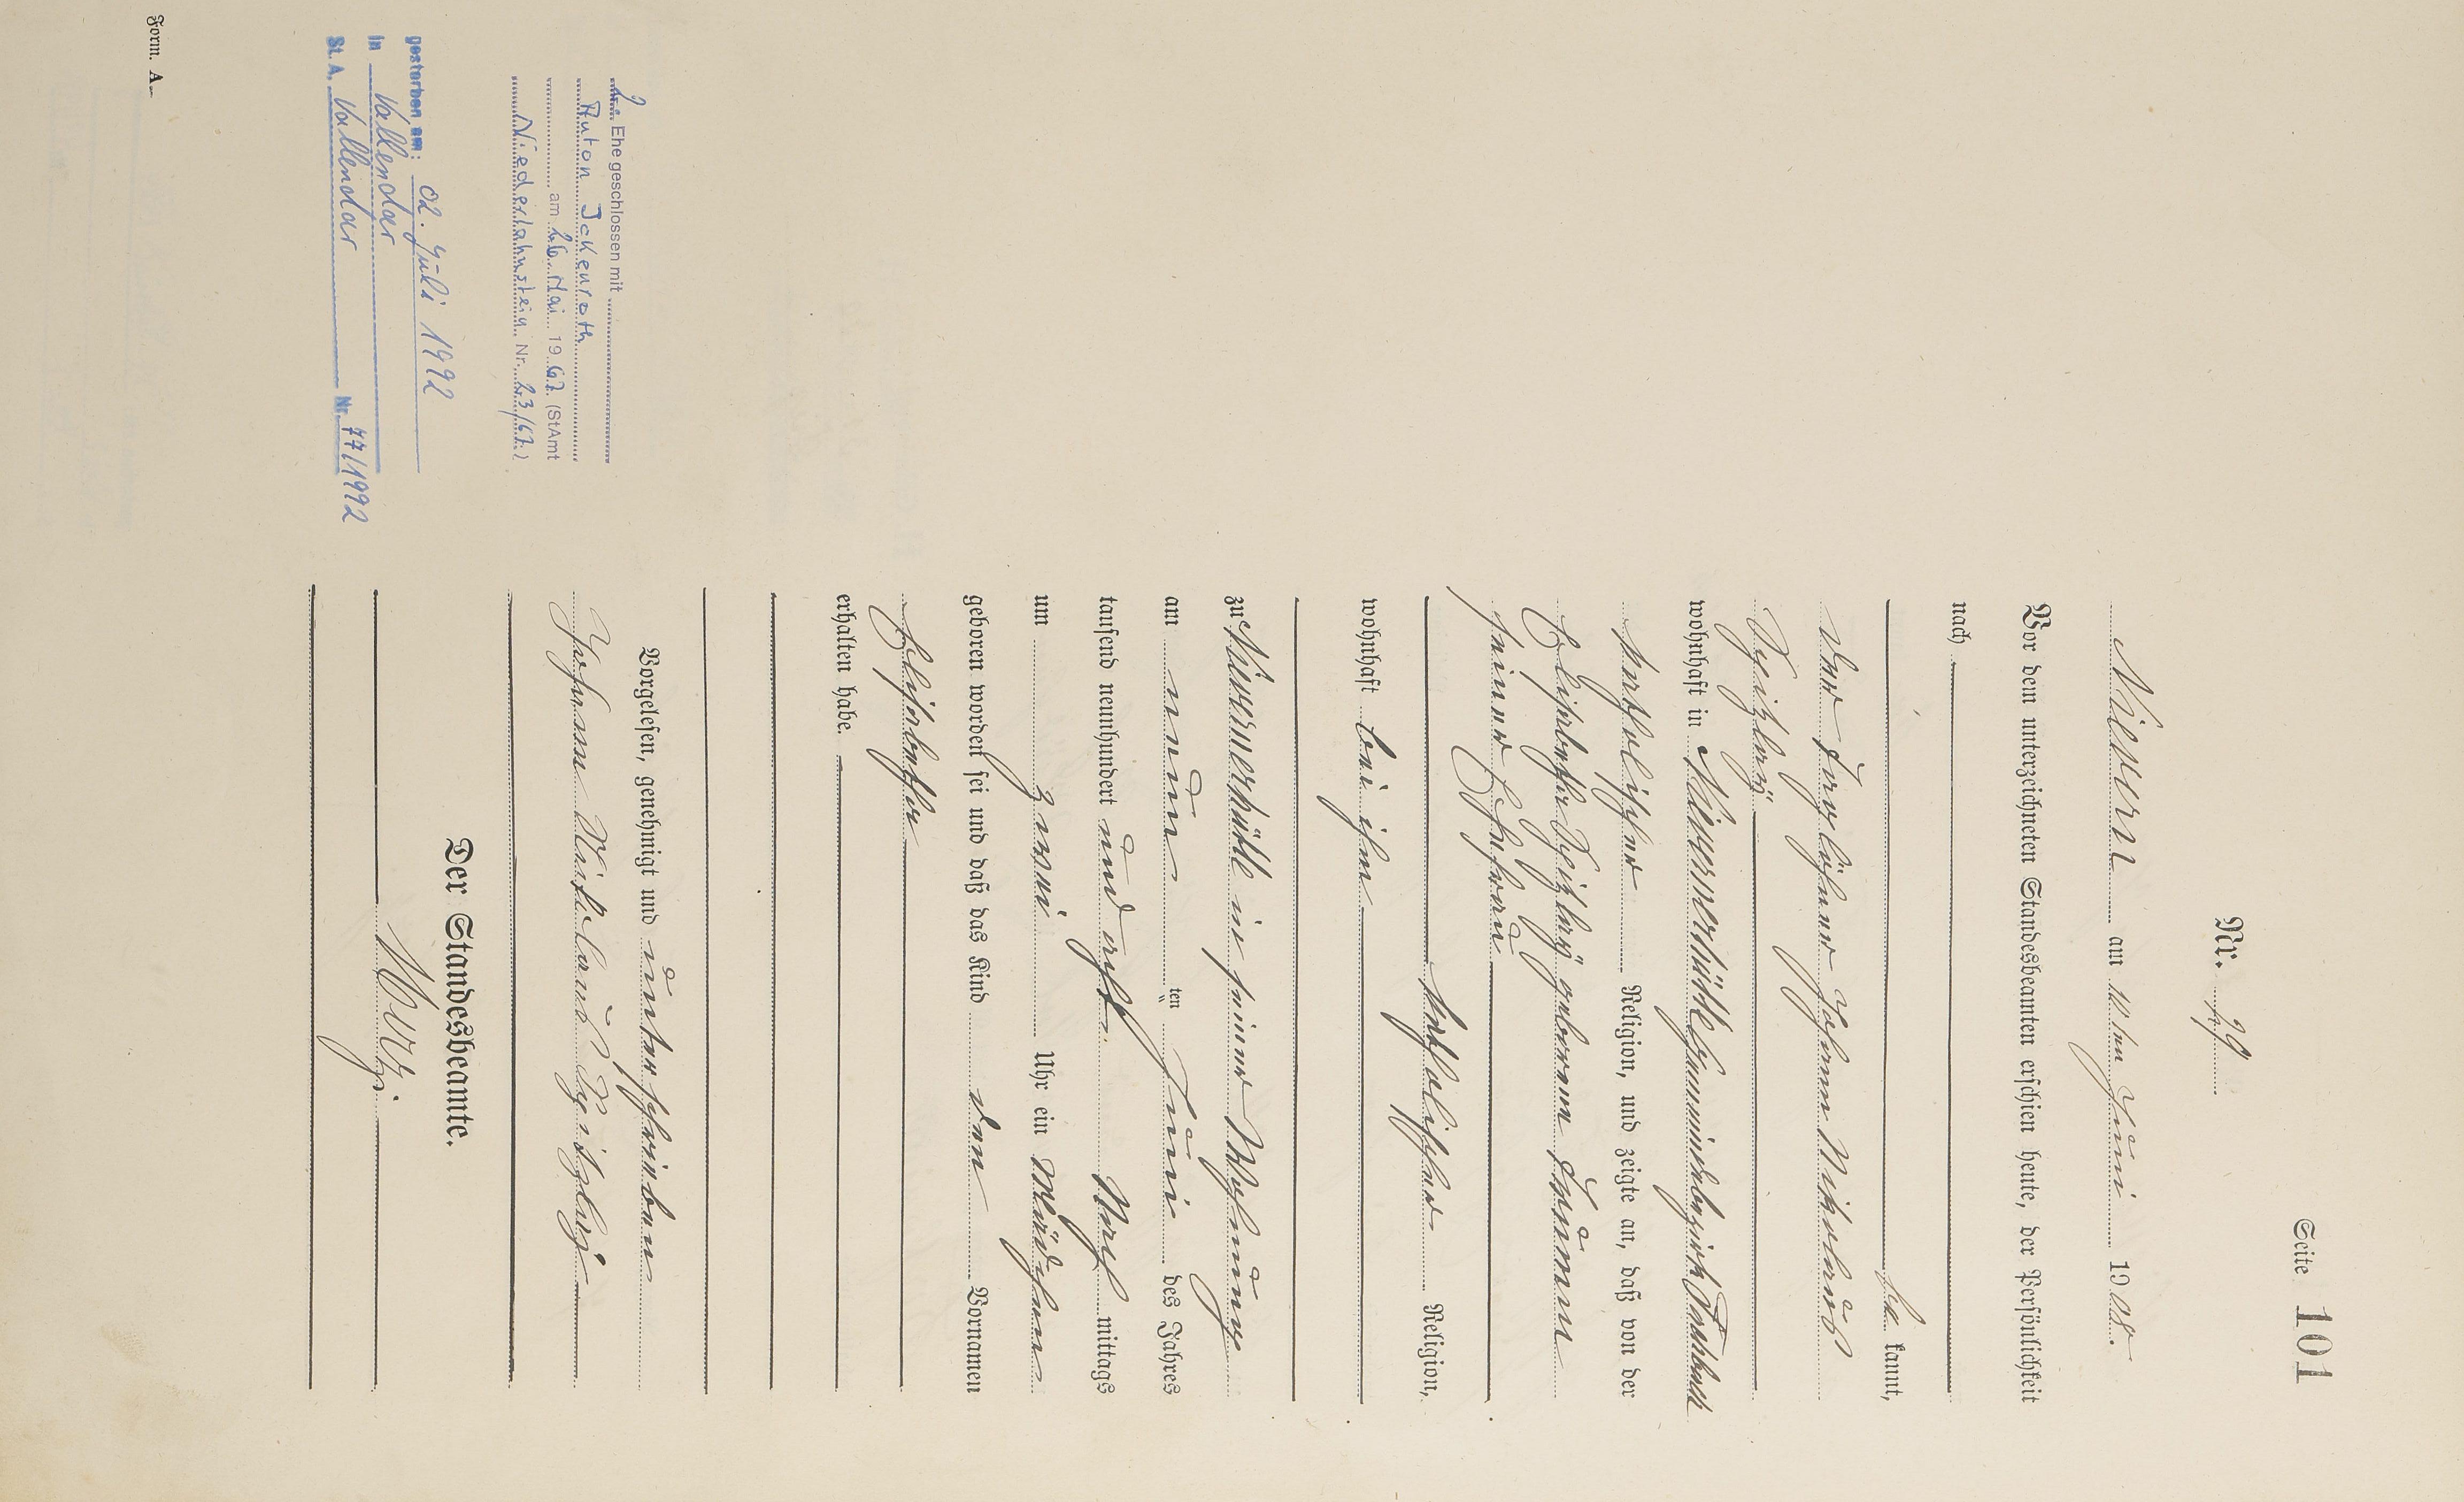 Seite 101
Nr. 99
Nievern am 10ten Juni 1908.
Vor dem unterzeichneten Standesbeamten erschien heute, der Persönlichkeit
nach
kannt,
der Taglöhner Johann Nikolaus
wohnhaft in Nievernerhütte Gemeindebezirk Fachbach
katholischer Religion, und zeigte an, daß von der
Elisabetha geborenen
seiner Ehefrau
katholischer Religion,
wohnhaft bei ihm
zu Nievernerhütte in seiner Wohnung
am neunten Juni des Jahres
tausend neunhundert und acht Nach mittags
um zwei Uhr ein Mädchen
geboren worden sei und daß das Kind den Vornamen
Elisabetha
erhalten habe.
Vorgelesen, genehmigt und unterschrieben
Johann Nikolaus
Der Standesbeamte.
2. Ehe geschlossen mit
Anton Jckenroth
am 26. Mai 1967 (StAmt
Niederlahnstein Nr. 23/67)
gestorben am: 02. Juli 1992
in Vallendar
St. A. Vallendar Nr. 77/1992
Form. A.